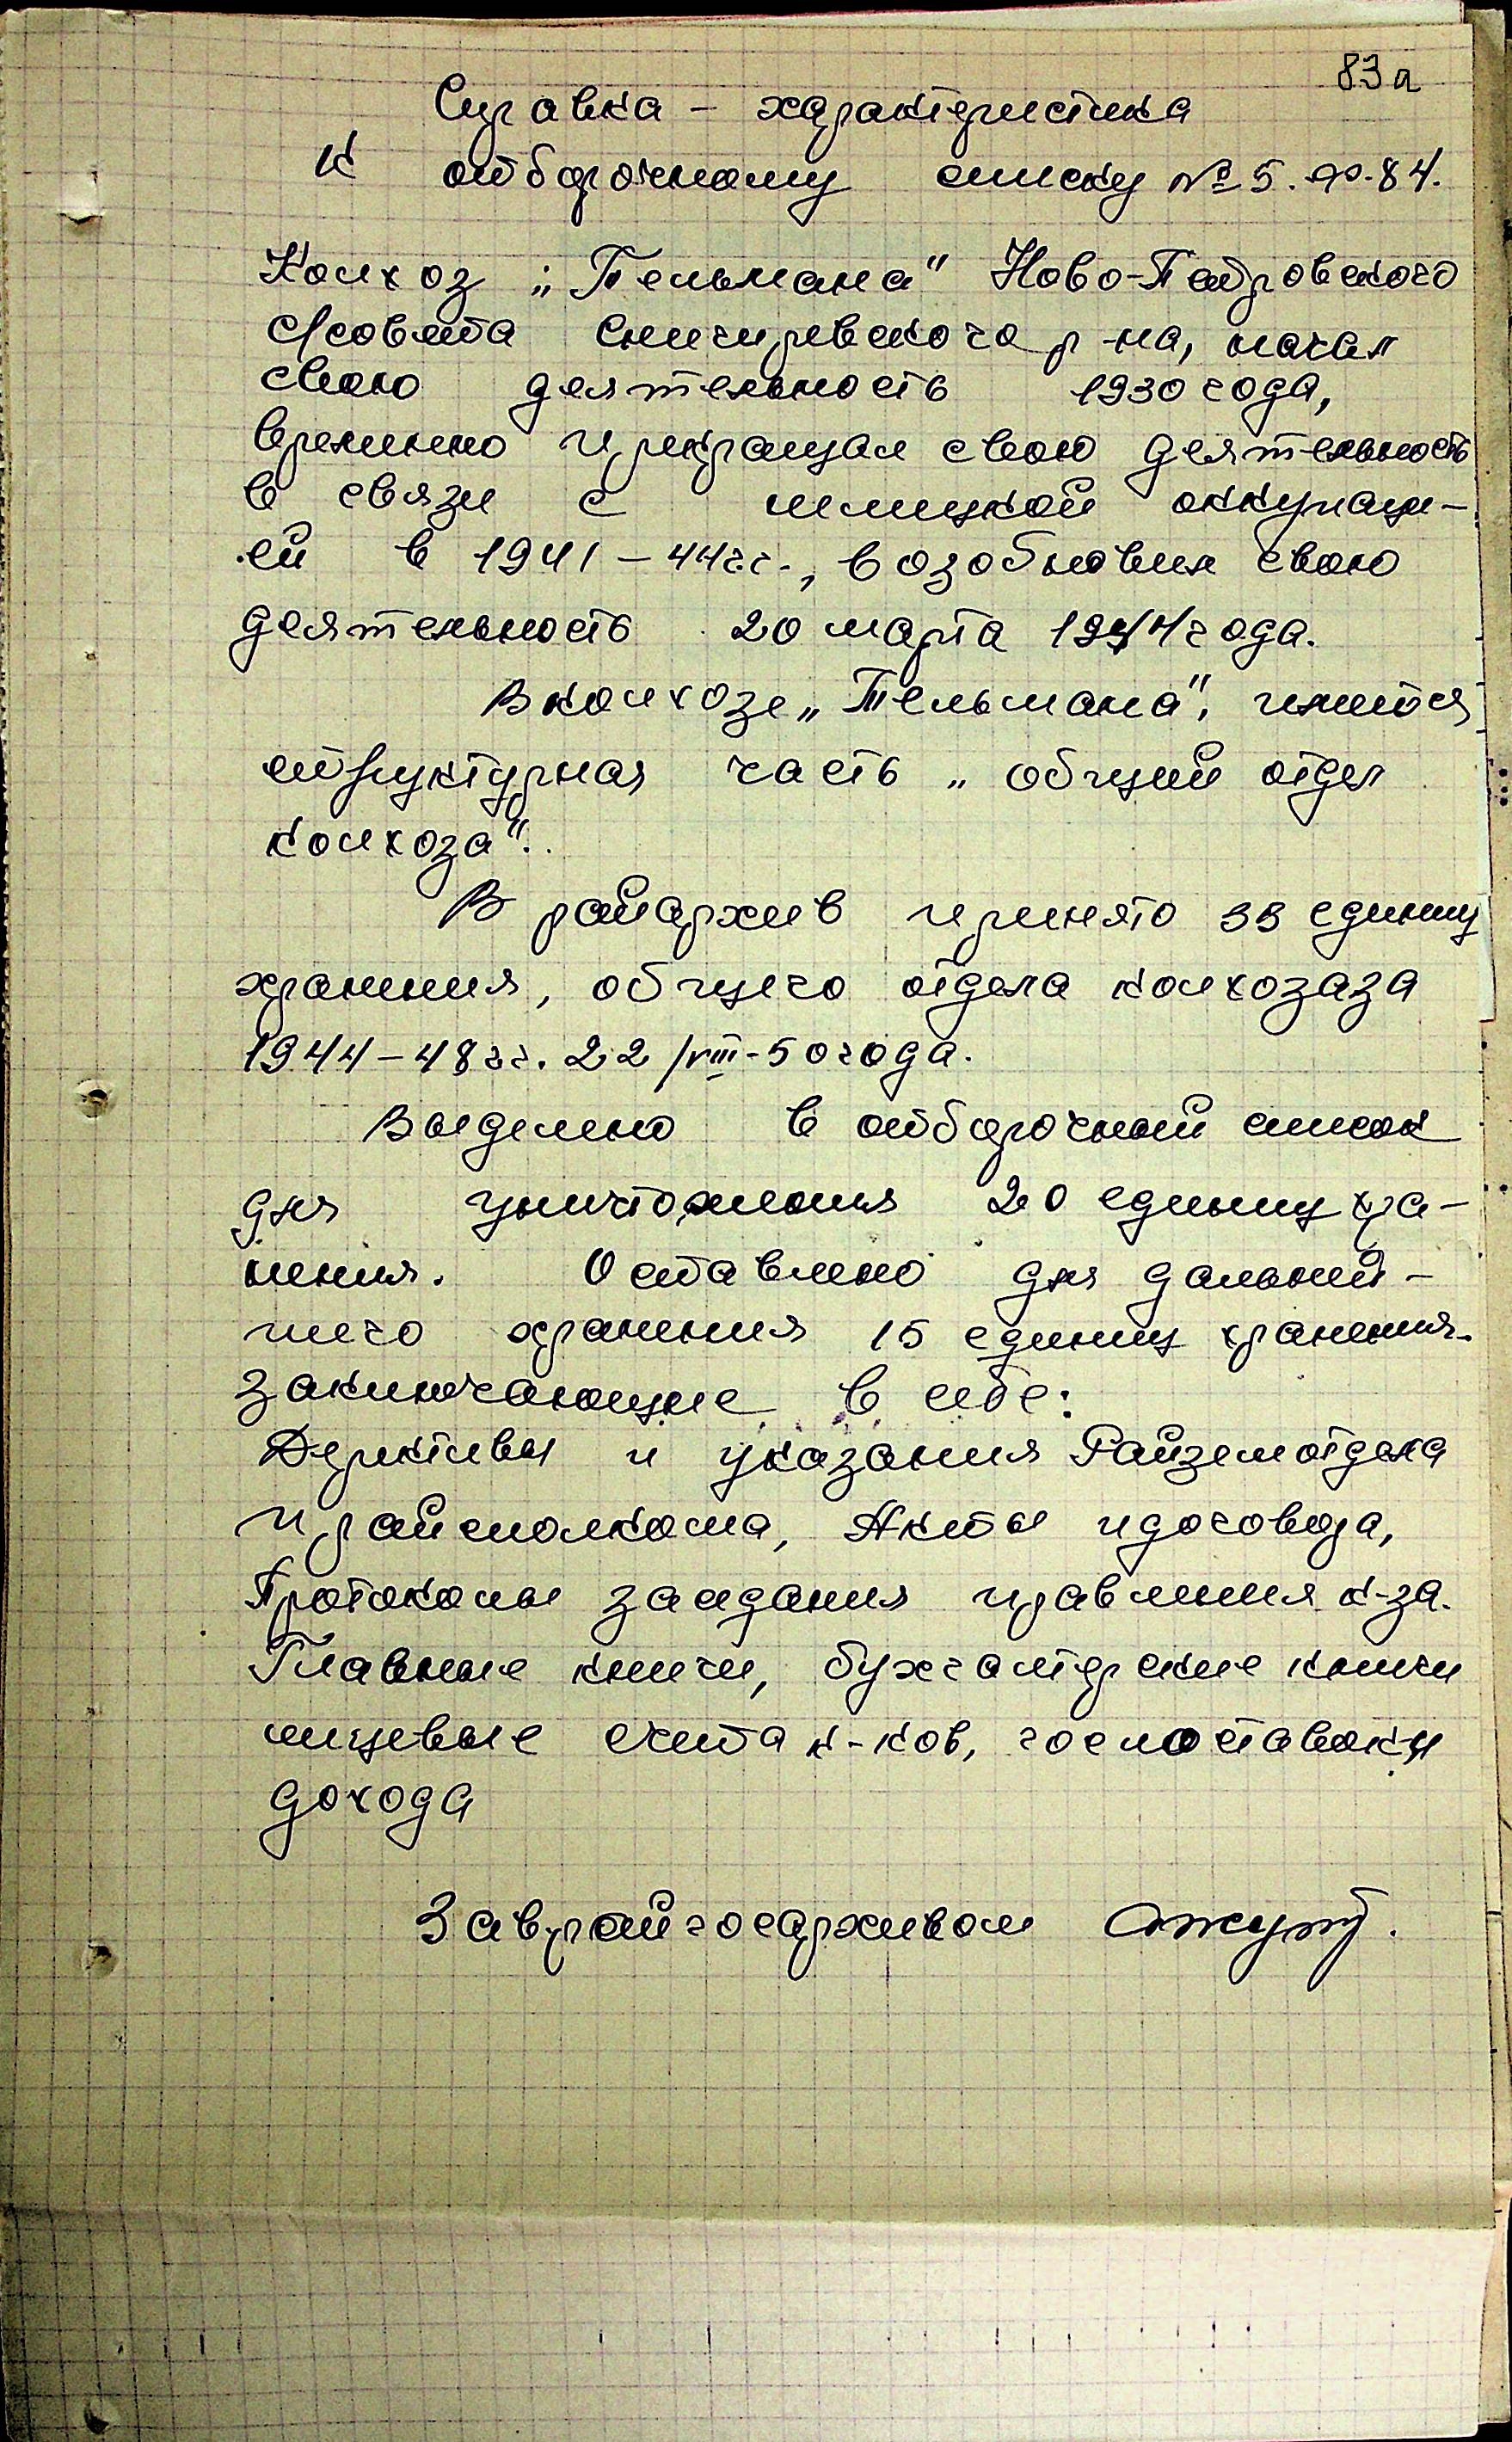 83а
Справка – характеристика
К отборочному списку № 5. ф. 84.
Колхоз „Тельмана" Ново-Петровского
с/совета Снигиревского р-на, начал
свою деятельность 1930 года,
временно прекращал свою деятельность
в связи с немецкой оккупаци-
ей в 1941–44 гг., возобновил свою
деятельность 20 марта 1944 года.
В колхозе „Тельмана", имется
структурная часть „общий отдел
колхоза".
В райархив принято 33 единиц
хранения, общего отдела колхоза за
1944–48 гг. 22/VIII-50 года.
Выделено в отборочный список
для уничтожения 20 единиц хра-
нения. Оставлено для дальней-
шего хранения 15 единиц хранения.
заключающие в себе:
Дериктивы и указания Райземотдела
и райсполкома, Акты и договора,
Протоколы заседания правления к-за.
Главные книги, бухгалтерские книги
лицевые счета к-ков, госпоставоки
дохода
Зав. райгосархивом